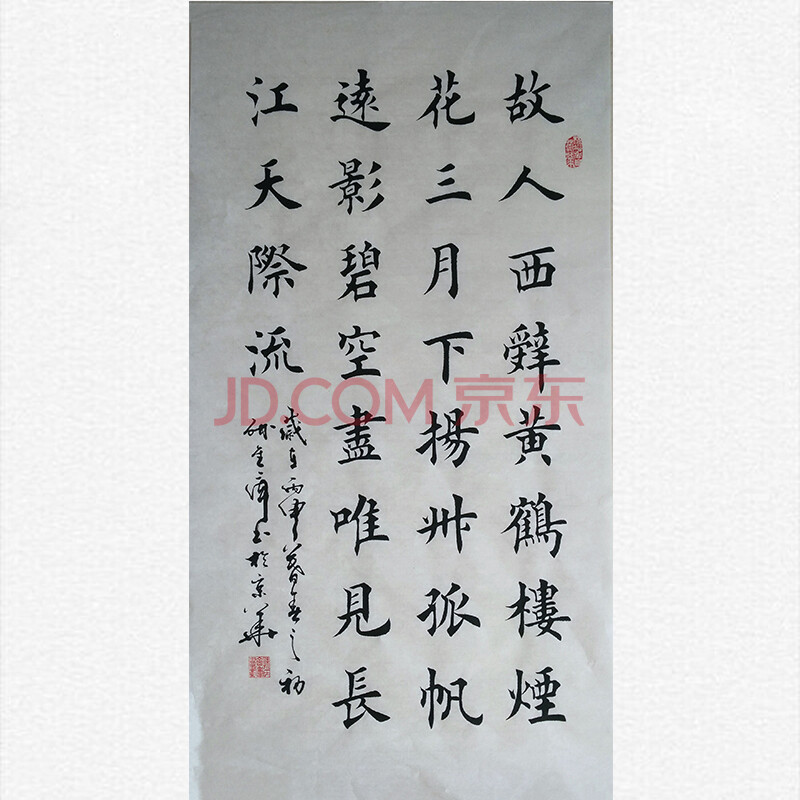 故人西辭黃鶴樓煙
花三月下揚州孤帆
遠影碧空盡唯見長
江天際流
歲在丙申暮春之初
金濤書於京華
JD.COM 京东